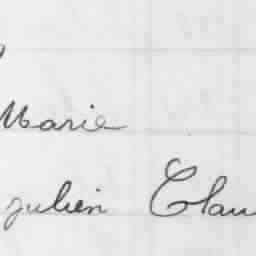 Marie
julien Clau